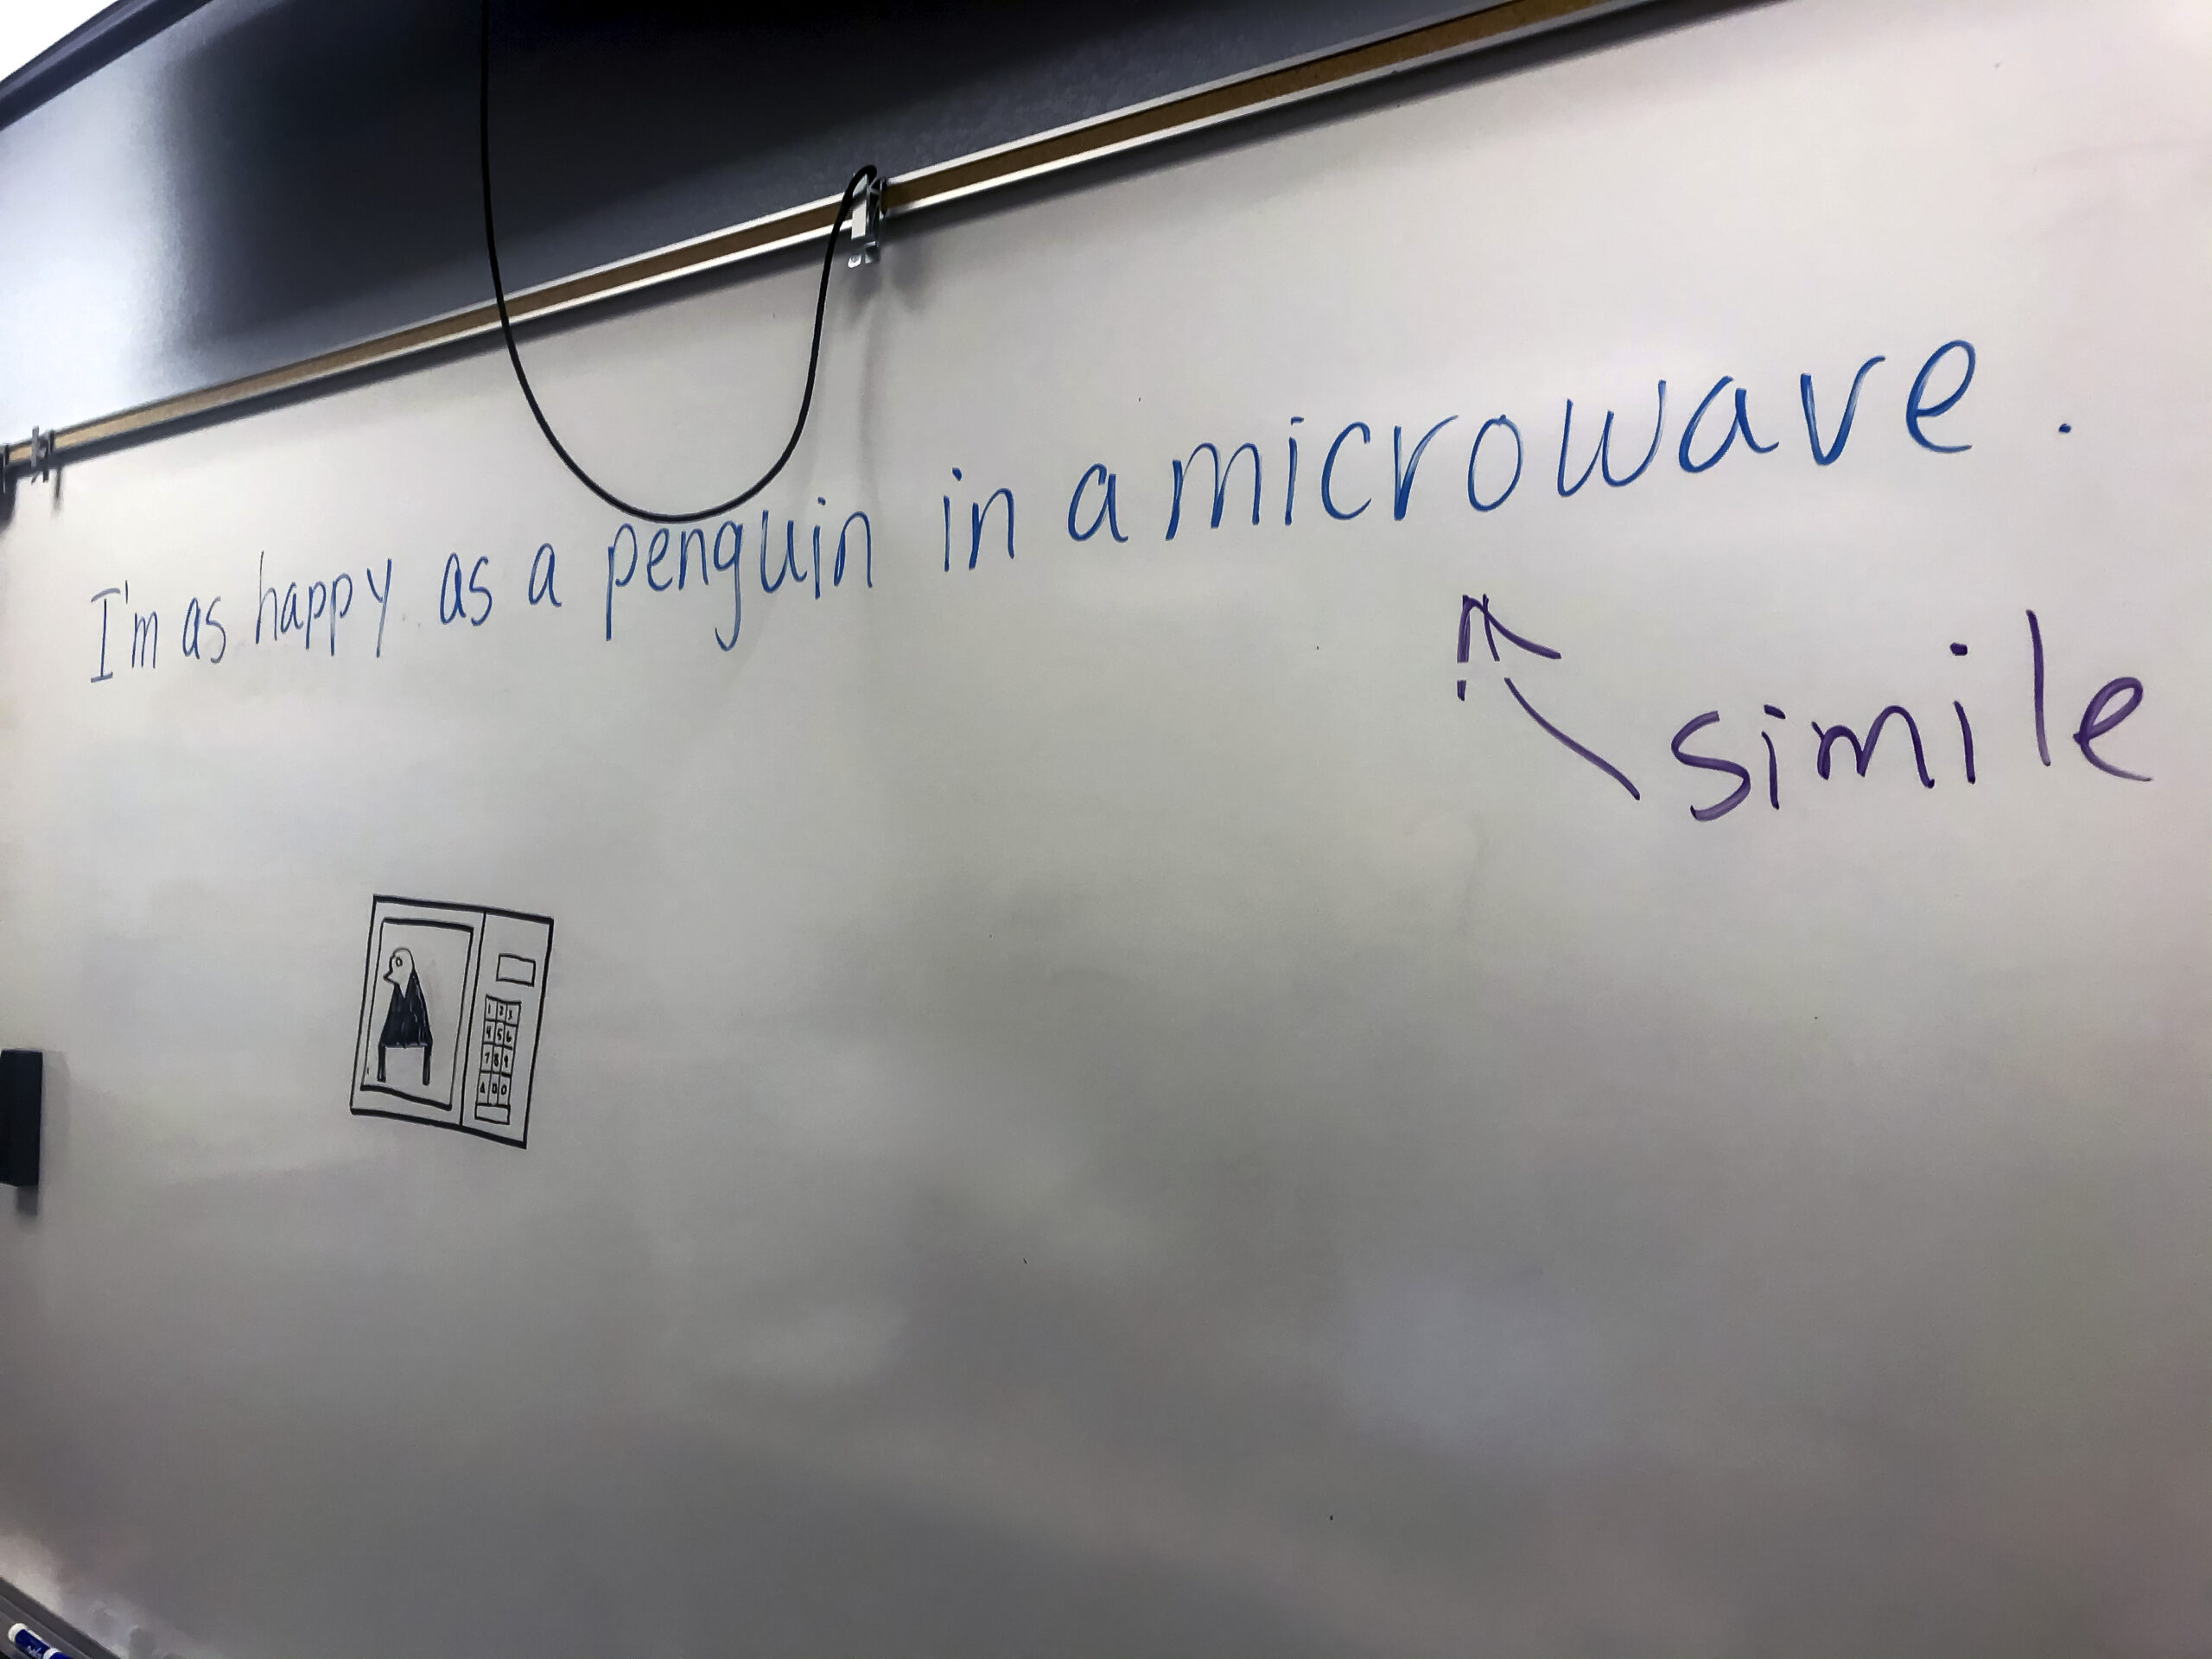 I'm as happy as a penguin in a microwave.
simile
1 2 3
4 5 6
7 8 9